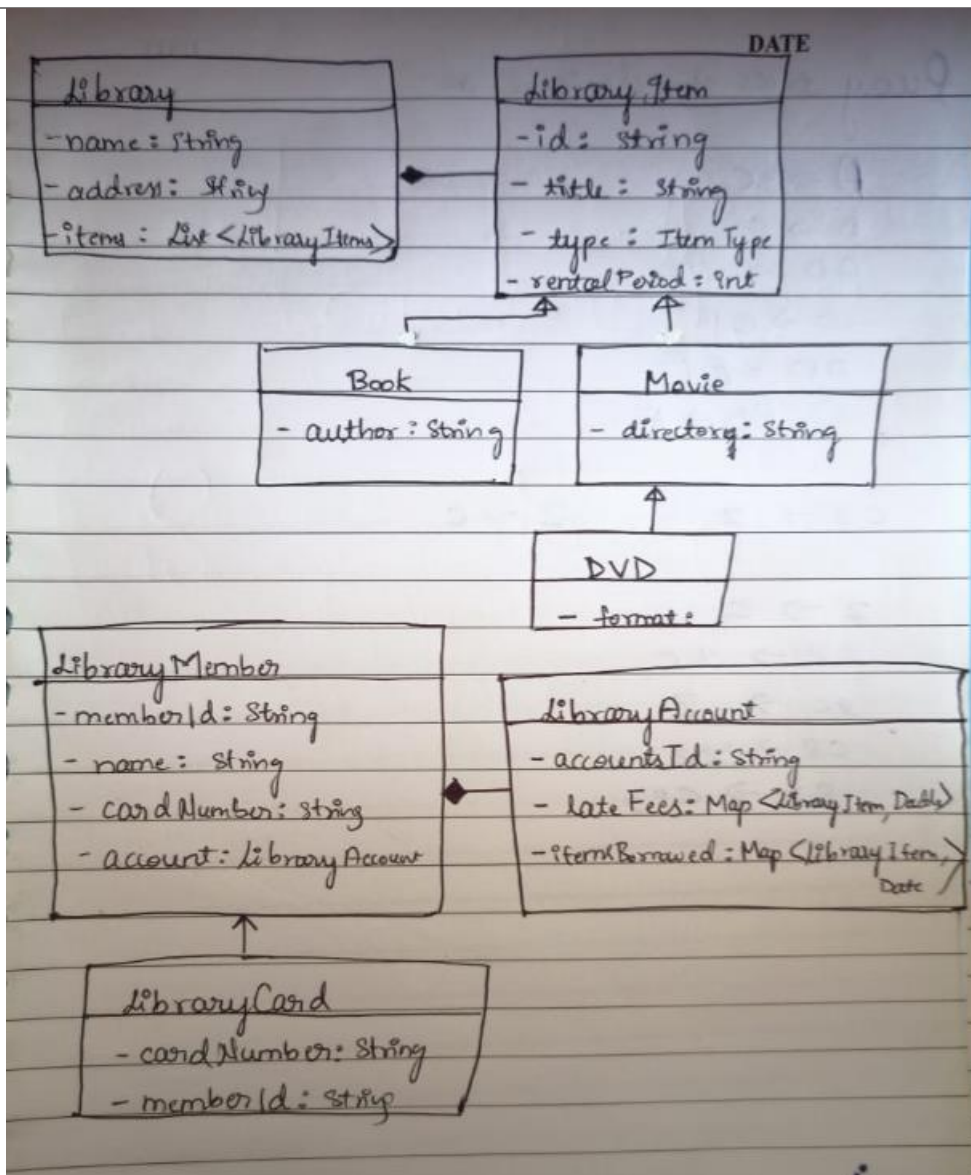 DATE
Library
- name : String
- address : String
- items : List <LibraryItems>
Library Item
- id : String
- title : String
- type : Item Type
- rentalPeriod : int
Book
- author : String
Movie
- directorg : String
DVD
- format :
LibraryMember
- memberId : String
- name : String
- cardNumber : String
- account : Library Account
LibraryAccount
- accountsId : String
- lateFees : Map <Library Item, Double>
- itemsBorrowed : Map <Library Item,
Date >
LibraryCard
- cardNumber : String
- memberId : String